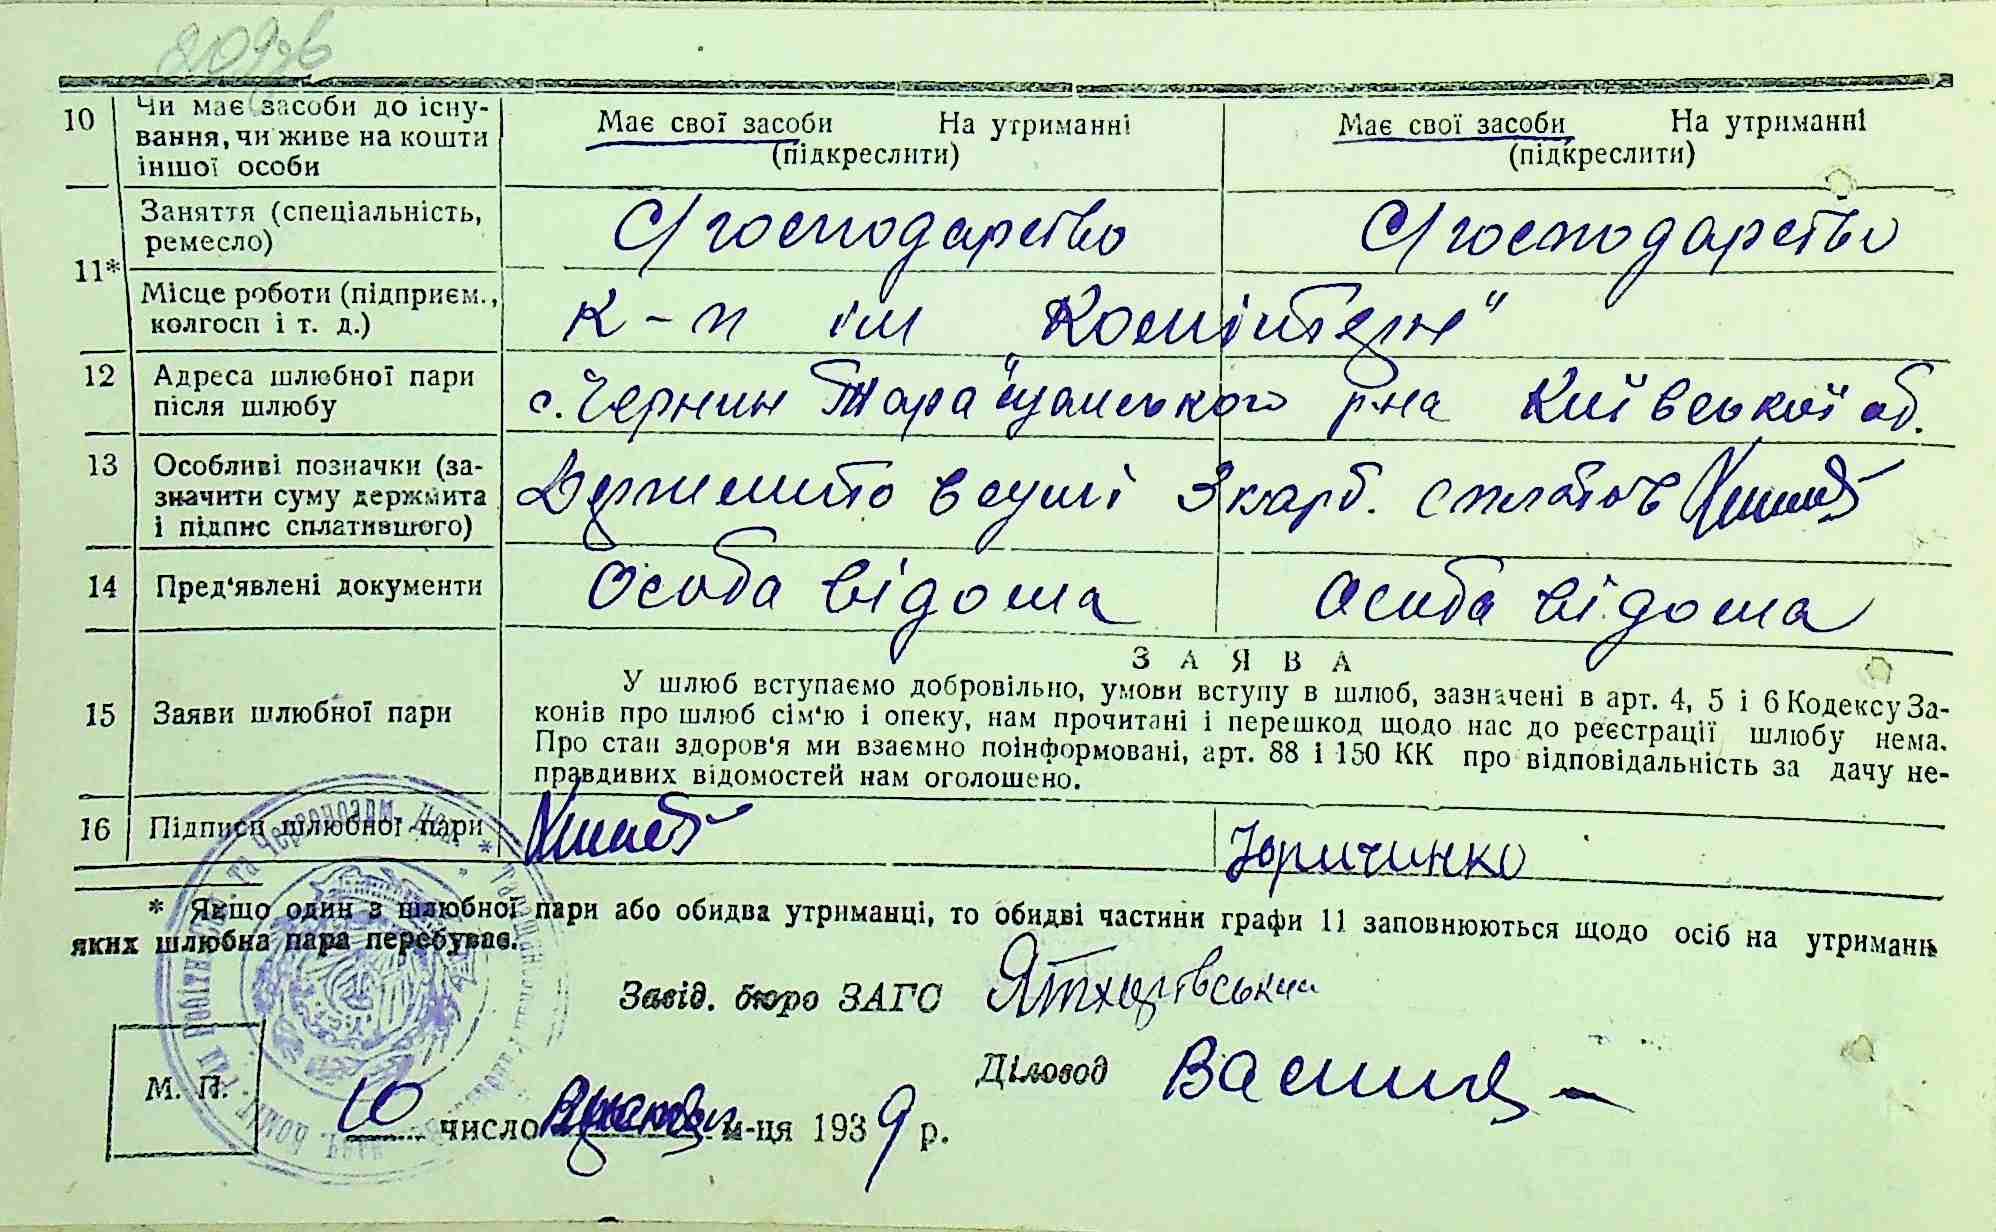 209зв
10 Чи має засоби до існу-
вання, чи живе на кошти
іншої особи
Має свої засоби На утриманні
(підкреслити)
Має свої засоби На утриманні
(підкреслити)
11*
Заняття (спеціальність,
ремесло)
С/господарство С/господарство
Місце роботи (підприєм.,
колгосп і т. д.)
К-п ім Комінтерн"
12 Адреса шлюбної пари
після шлюбу
с. Чернин Таращанського р-на Київської об.
13 Особливі позначки (за-
значити суму держмита
і підпис сплатившого)
Держмито в сумі 3 карб. сплатив
14 Пред'явлені документи
Особа відома Особа відома
15 Заяви шлюбної пари
ЗАЯВА
У шлюб вступаємо добровільно, умови вступу в шлюб, зазначені в арт. 4, 5 і 6 Кодексу За-
конів про шлюб сім'ю і опеку, нам прочитані і перешкод щодо нас до реєстрації шлюбу нема.
Про стан здоров'я ми взаємно поінформовані, арт. 88 і 150 КК про відповідальність за дачу не-
правдивих відомостей нам оголошено.
16 Підписи шлюбної пари
Юричинко
* Якщо один з шлюбної пари або обидва утриманці, то обидві частини графи 11 заповнюються щодо осіб на утриманн
яких шлюбна пара перебуває.
Завід. бюро ЗАГС
Діловод
М. П.
10 число м-ця 1939 р.